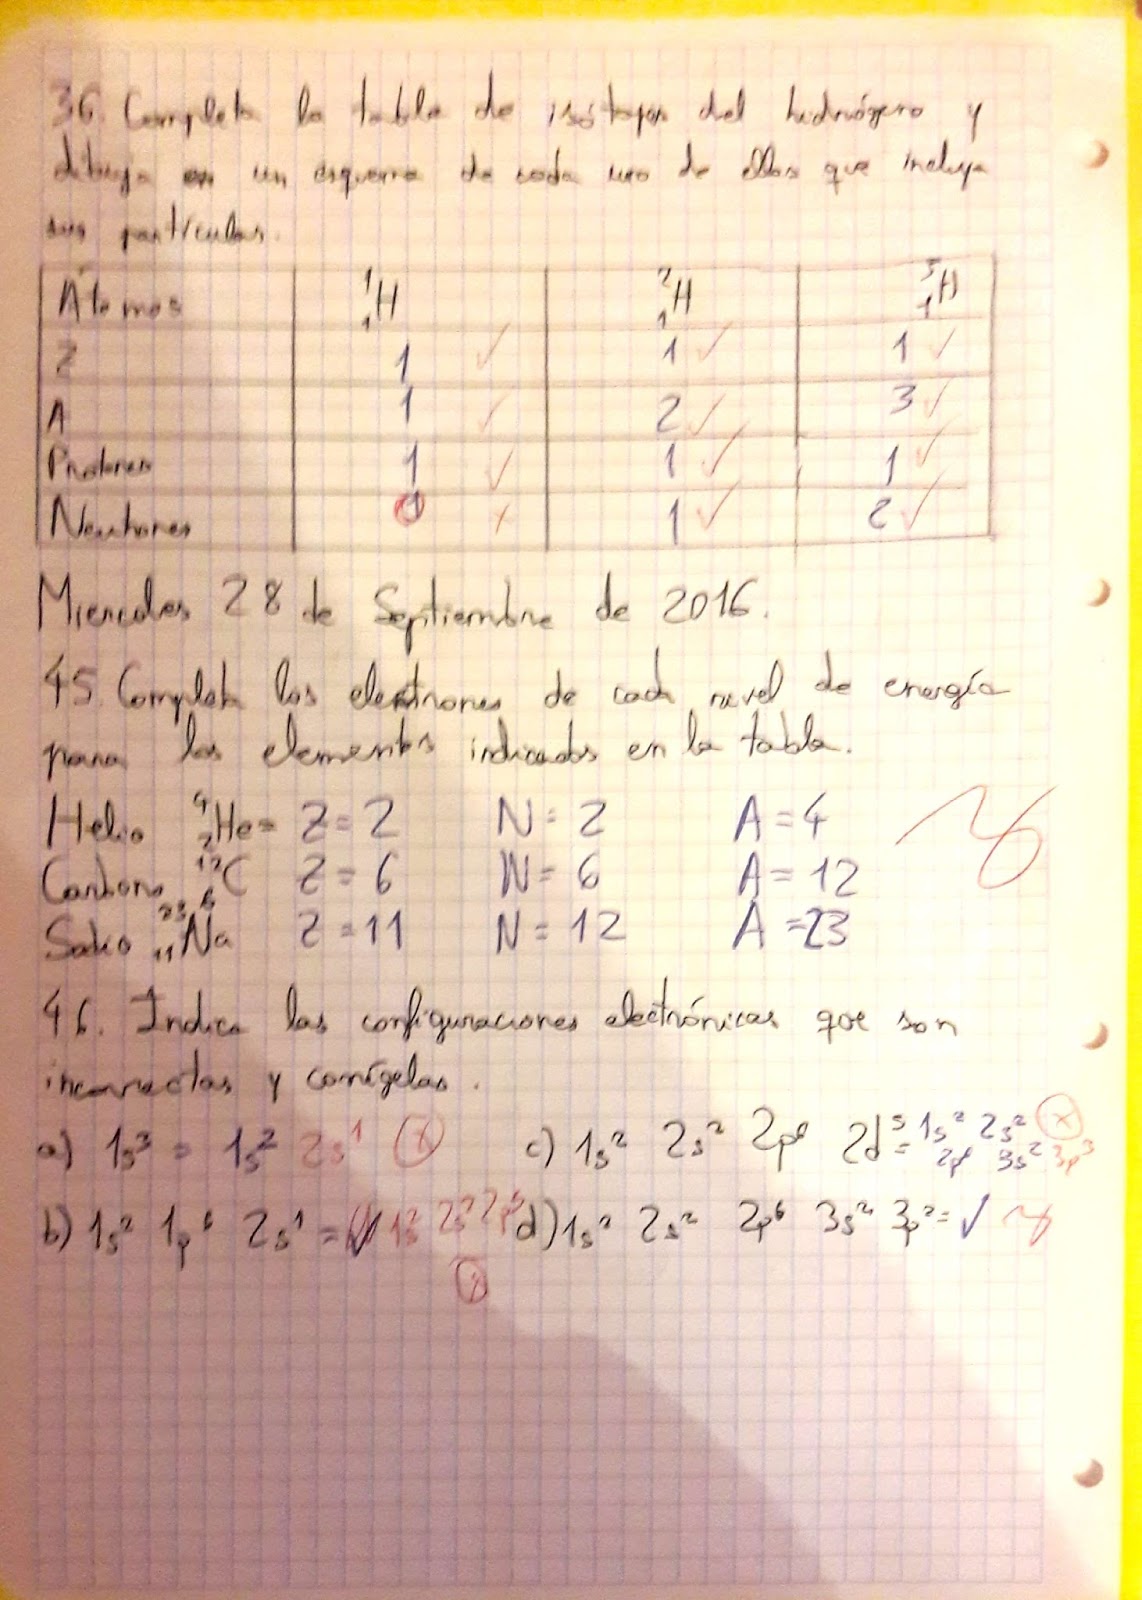 36. Completa la tabla de isótopos del hidrógeno y
dibuja en un esquema de cada uno de ellos que incluya
sus partículas.
Átomos ¹₁H ²₁H ³₁H
Z 1 ✓ 1 ✓ 1 ✓
A 1 ✓ 2 ✓ 3 ✓
Protones 1 ✓ 1 ✓ 1 ✓
Neutrones 1 x 1 ✓ 2 ✓
Miercoles 28 de Septiembre de 2016.
45. Completa los electrones de cada nivel de energía
para los elementos indicados en la tabla.
Helio ⁴₂He = Z = 2 N = 2 A = 4
Carbono ¹²₆C Z = 6 N = 6 A = 12
Sodio ²³₁₁Na Z = 11 N = 12 A = 23
46. Indica las configuraciones electrónicas que son
incorrectas y corrígelas.
a) 1s³ = 1s² 2s¹ x
c) 1s² 2s² 2p⁶ 2d⁵ = 1s² 2s² x
2p⁶ 3s² 3p³
b) 1s² 1p⁶ 2s¹ = 1s² 2s² 2p⁵ x
d) 1s² 2s² 2p⁶ 3s² 3p² = ✓